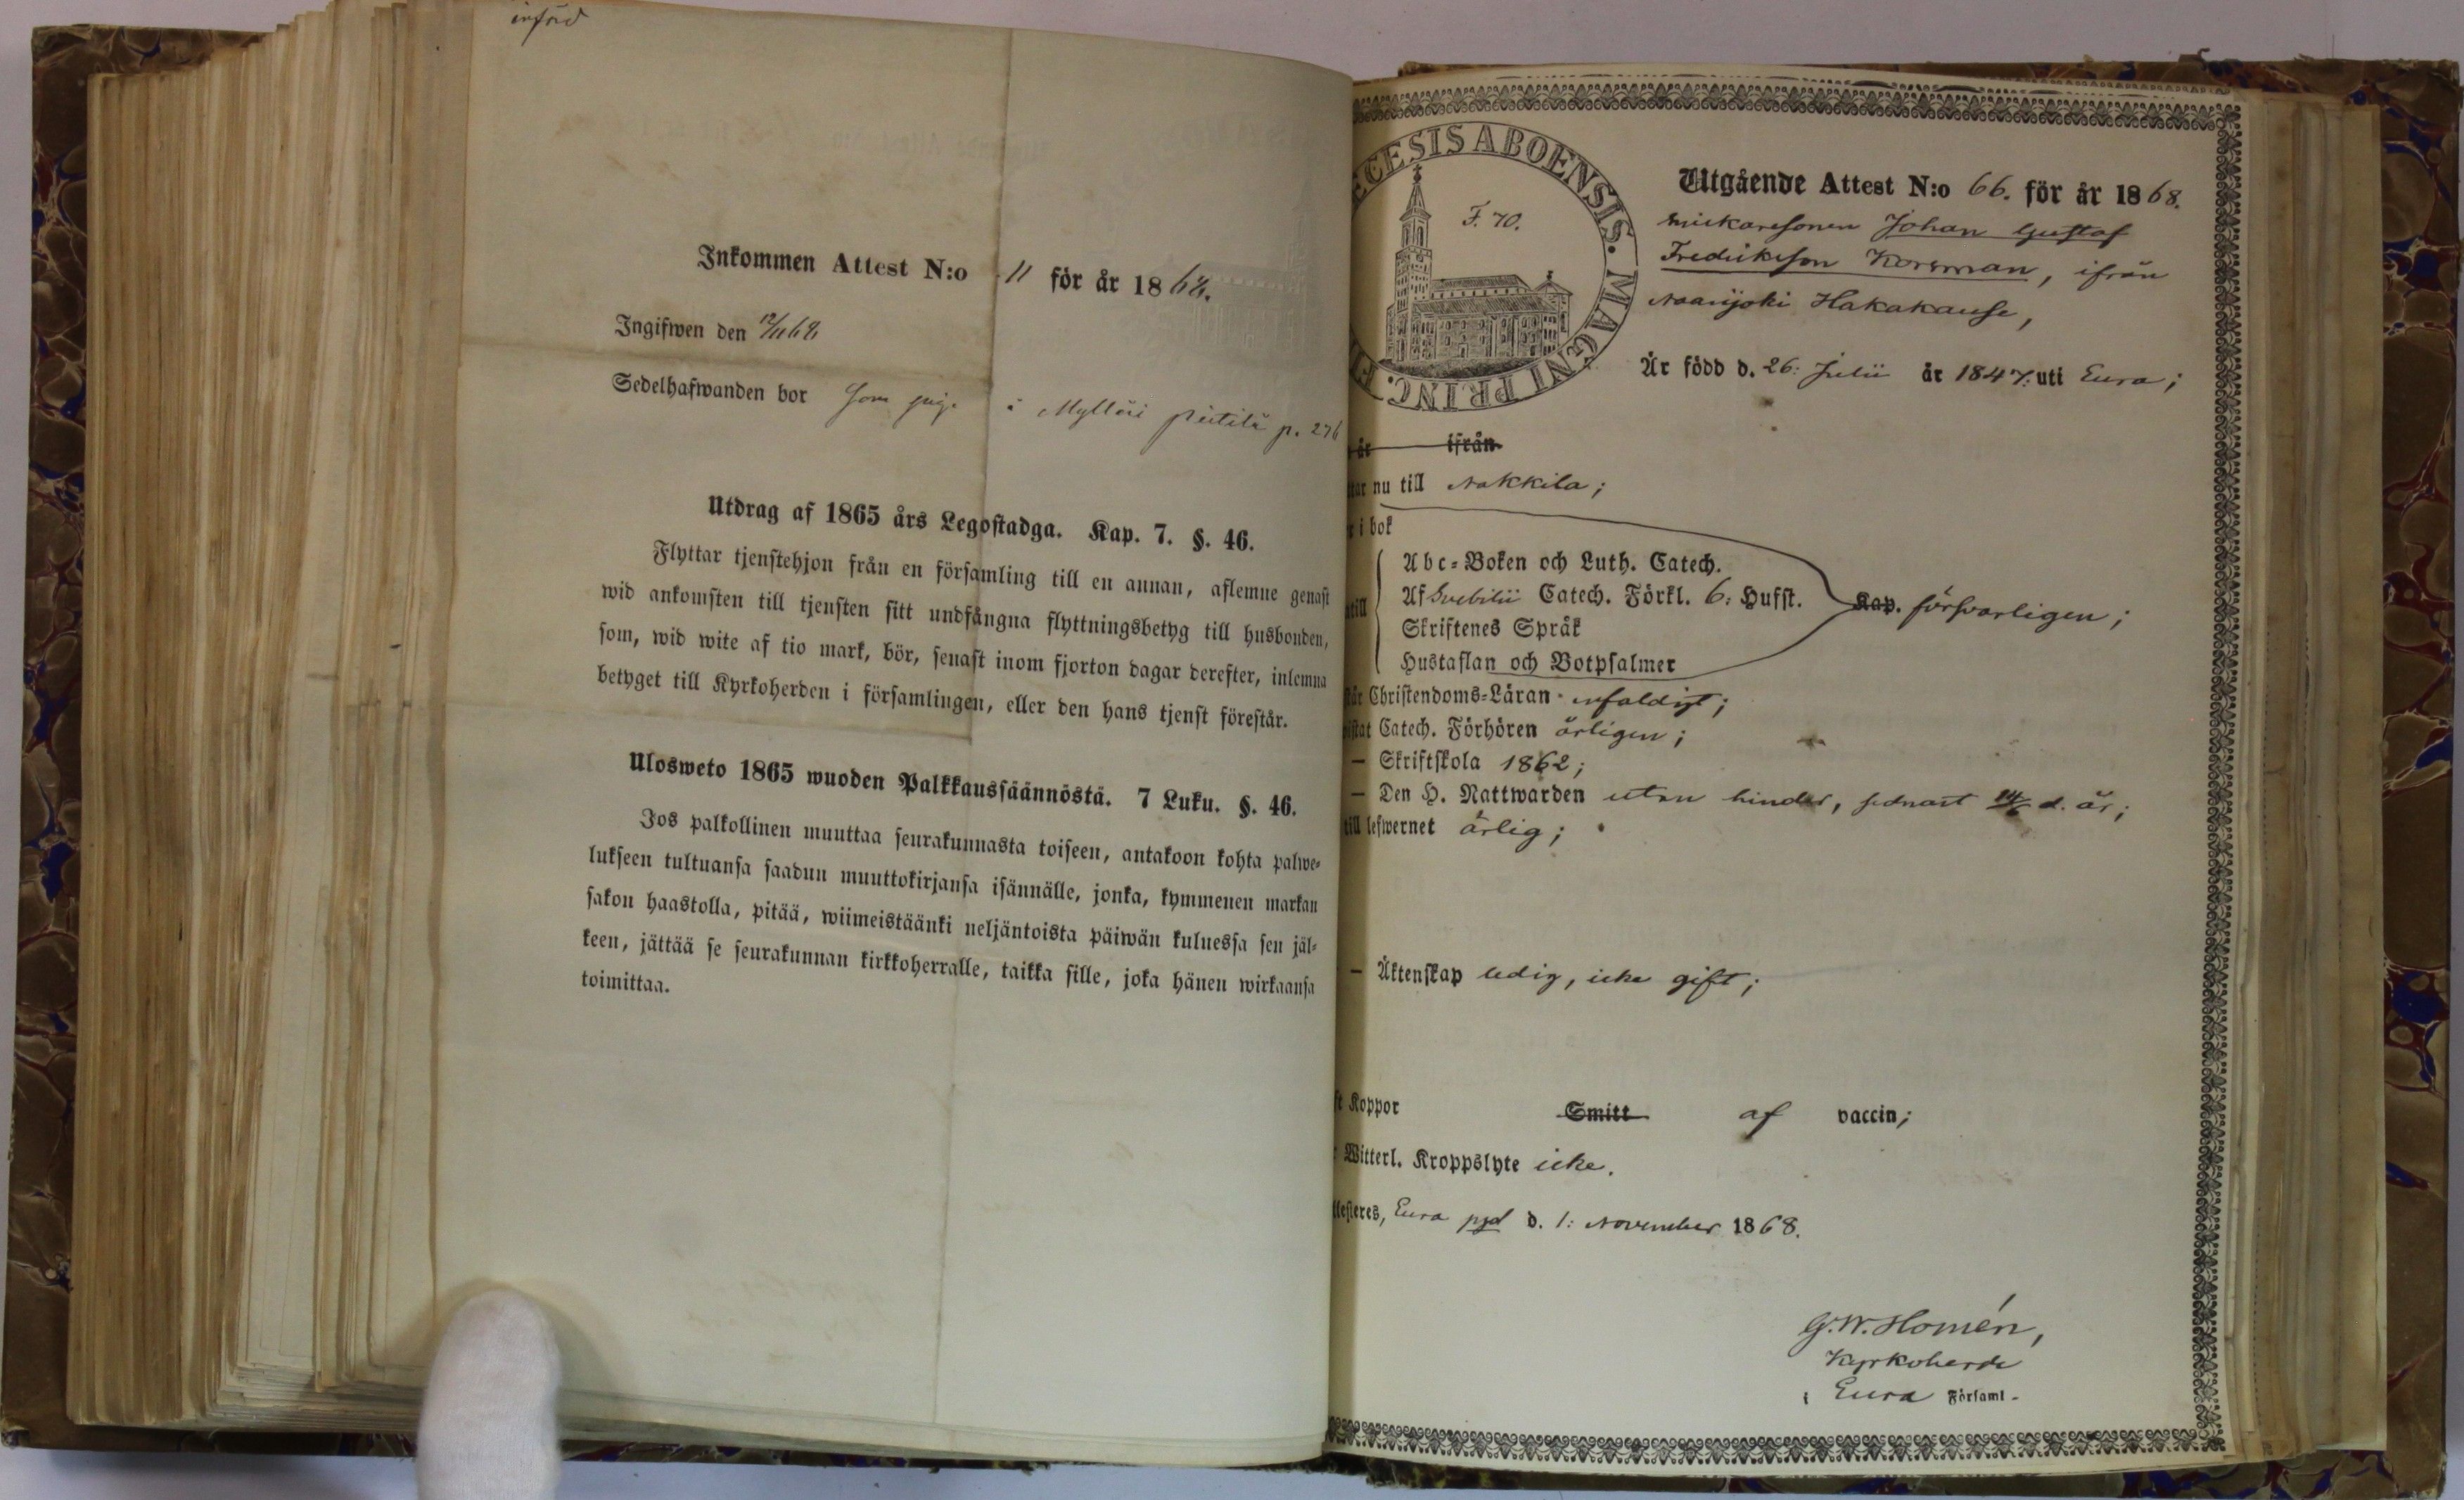 införd
Inkommen Attest N:o 11 för år 1868.
Ingifwen den 12/11 68
Sedelhafwanden bor som pig. i Mylläri p. 276
Utdrag af 1865 års Legostadga. Kap. 7. §. 46.
Flyttar tjenstehjon från en församling till en annan, aflemne genast
wid ankomsten till tjensten sitt undfångna flyttningsbetyg till husbonden,
som, wid wite af tio mark, bör, senast inom fjorton dagar derefter, inlemna
betyget till Kyrkoherden i församlingen, eller den hans tjenst förestår.
Ulosweto 1865 wuoden Palkkaussäännöstä. 7 Luku. §. 46.
Jos palkollinen muuttaa seurakunnasta toiseen, antakoon kohta palwe-
lukseen tultuansa saadun muuttokirjansa isännälle, jonka, kymmenen markan
sakon haastolla, pitää, wiimeistäänki neljäntoista päiwän kuluessa sen jäl-
keen, jättää se seurakunnan kirkkoherralle, taikka sille, joka hänen wirkaansa
toimittaa.
ECESIS ABOENSIS. MAGNI PRINC. FI
F. 70.
Utgående Attest N:o 66. för år 1868.
Johan Gustaf
Fredriksson Korsman, ifrån
Naarijoki Hakakause,
Är född d. 26: Julii år 1847: uti Eura;
år ifrån
tar nu till Nakkila;
r i bok
Abc-Boken och Luth. Catech.
Af Svebilii Catech. Förkl. 6: Hufst. Kap. försvarligen;
ntill
Skriftenes Språk
Hustaflan och Botpsalmer
står Christendoms-Läran enfaldigt;
vistat Catech. Förhören årligen;
— Skriftskola 1862;
— Den H. Nattwarden utan hinder, sednast 14/6 d. år;
till lefwernet ärlig;
— Äktenskap ledig, icke gift;
t Koppor Smitt af vaccin;
r Witterl. Kroppslyte icke.
ttesteres, Eura pgd d. 1: November 1868.
G. W. Homén,
Kyrkoherde
i Eura Församl.